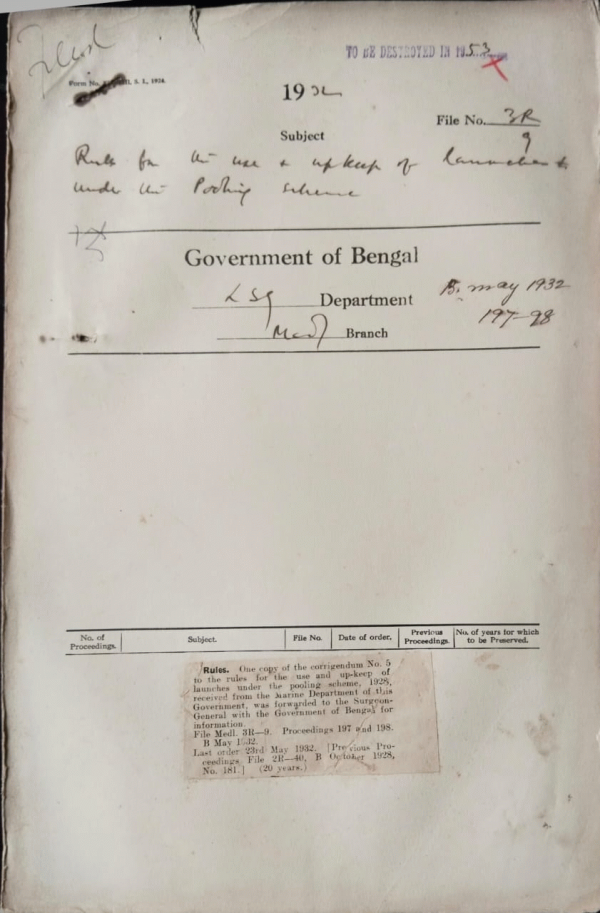 TO BE DESTROYED IN 1953
Form No.
S. I., 1924.
1932
File No. 3R
9
Subject
Rules for the use & upkeep of launches
under the Pooling scheme
Government of Bengal
LSG Department
B. May 1932
Medl Branch
197-98
No. of Proceedings.
Subject.
File No.
Date of order.
Previous Proceedings.
No. of years for which to be Preserved.
Rules. One copy of the corrigendum No. 5
to the rules for the use and up-keep of
launches under the pooling scheme, 1928,
received from the Marine Department of this
Government, was forwarded to the Surgeon-
General with the Government of Bengal for
information.
File Medl. 3R—9. Proceedings 197 and 198.
B May 1932.
Last order 23rd May 1932. [Previous Pro-
ceedings, File 2R—40, B October 1928,
No. 181.] (20 years.)